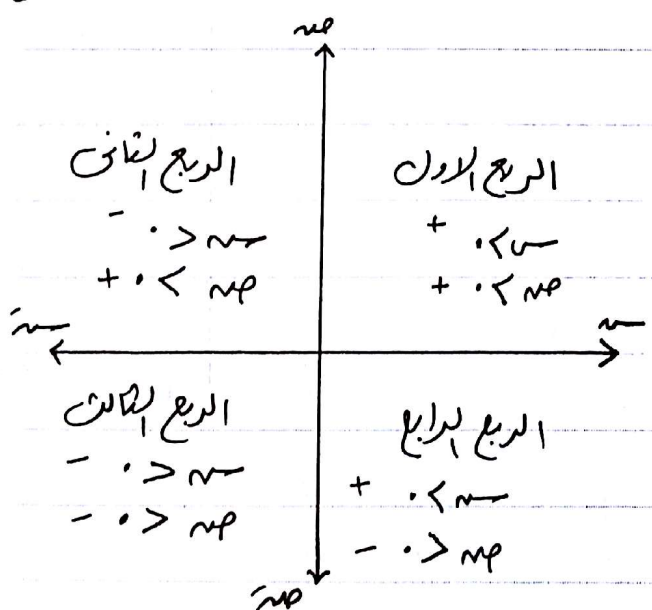 ص
الربع الاول
س > ٠ +
ص > ٠ +
الربع الثانى
س < ٠ -
ص > ٠ +
س
سَ
الربع الرابع
س > ٠ +
ص < ٠ -
الربع الثالث
س < ٠ -
ص < ٠ -
صَ